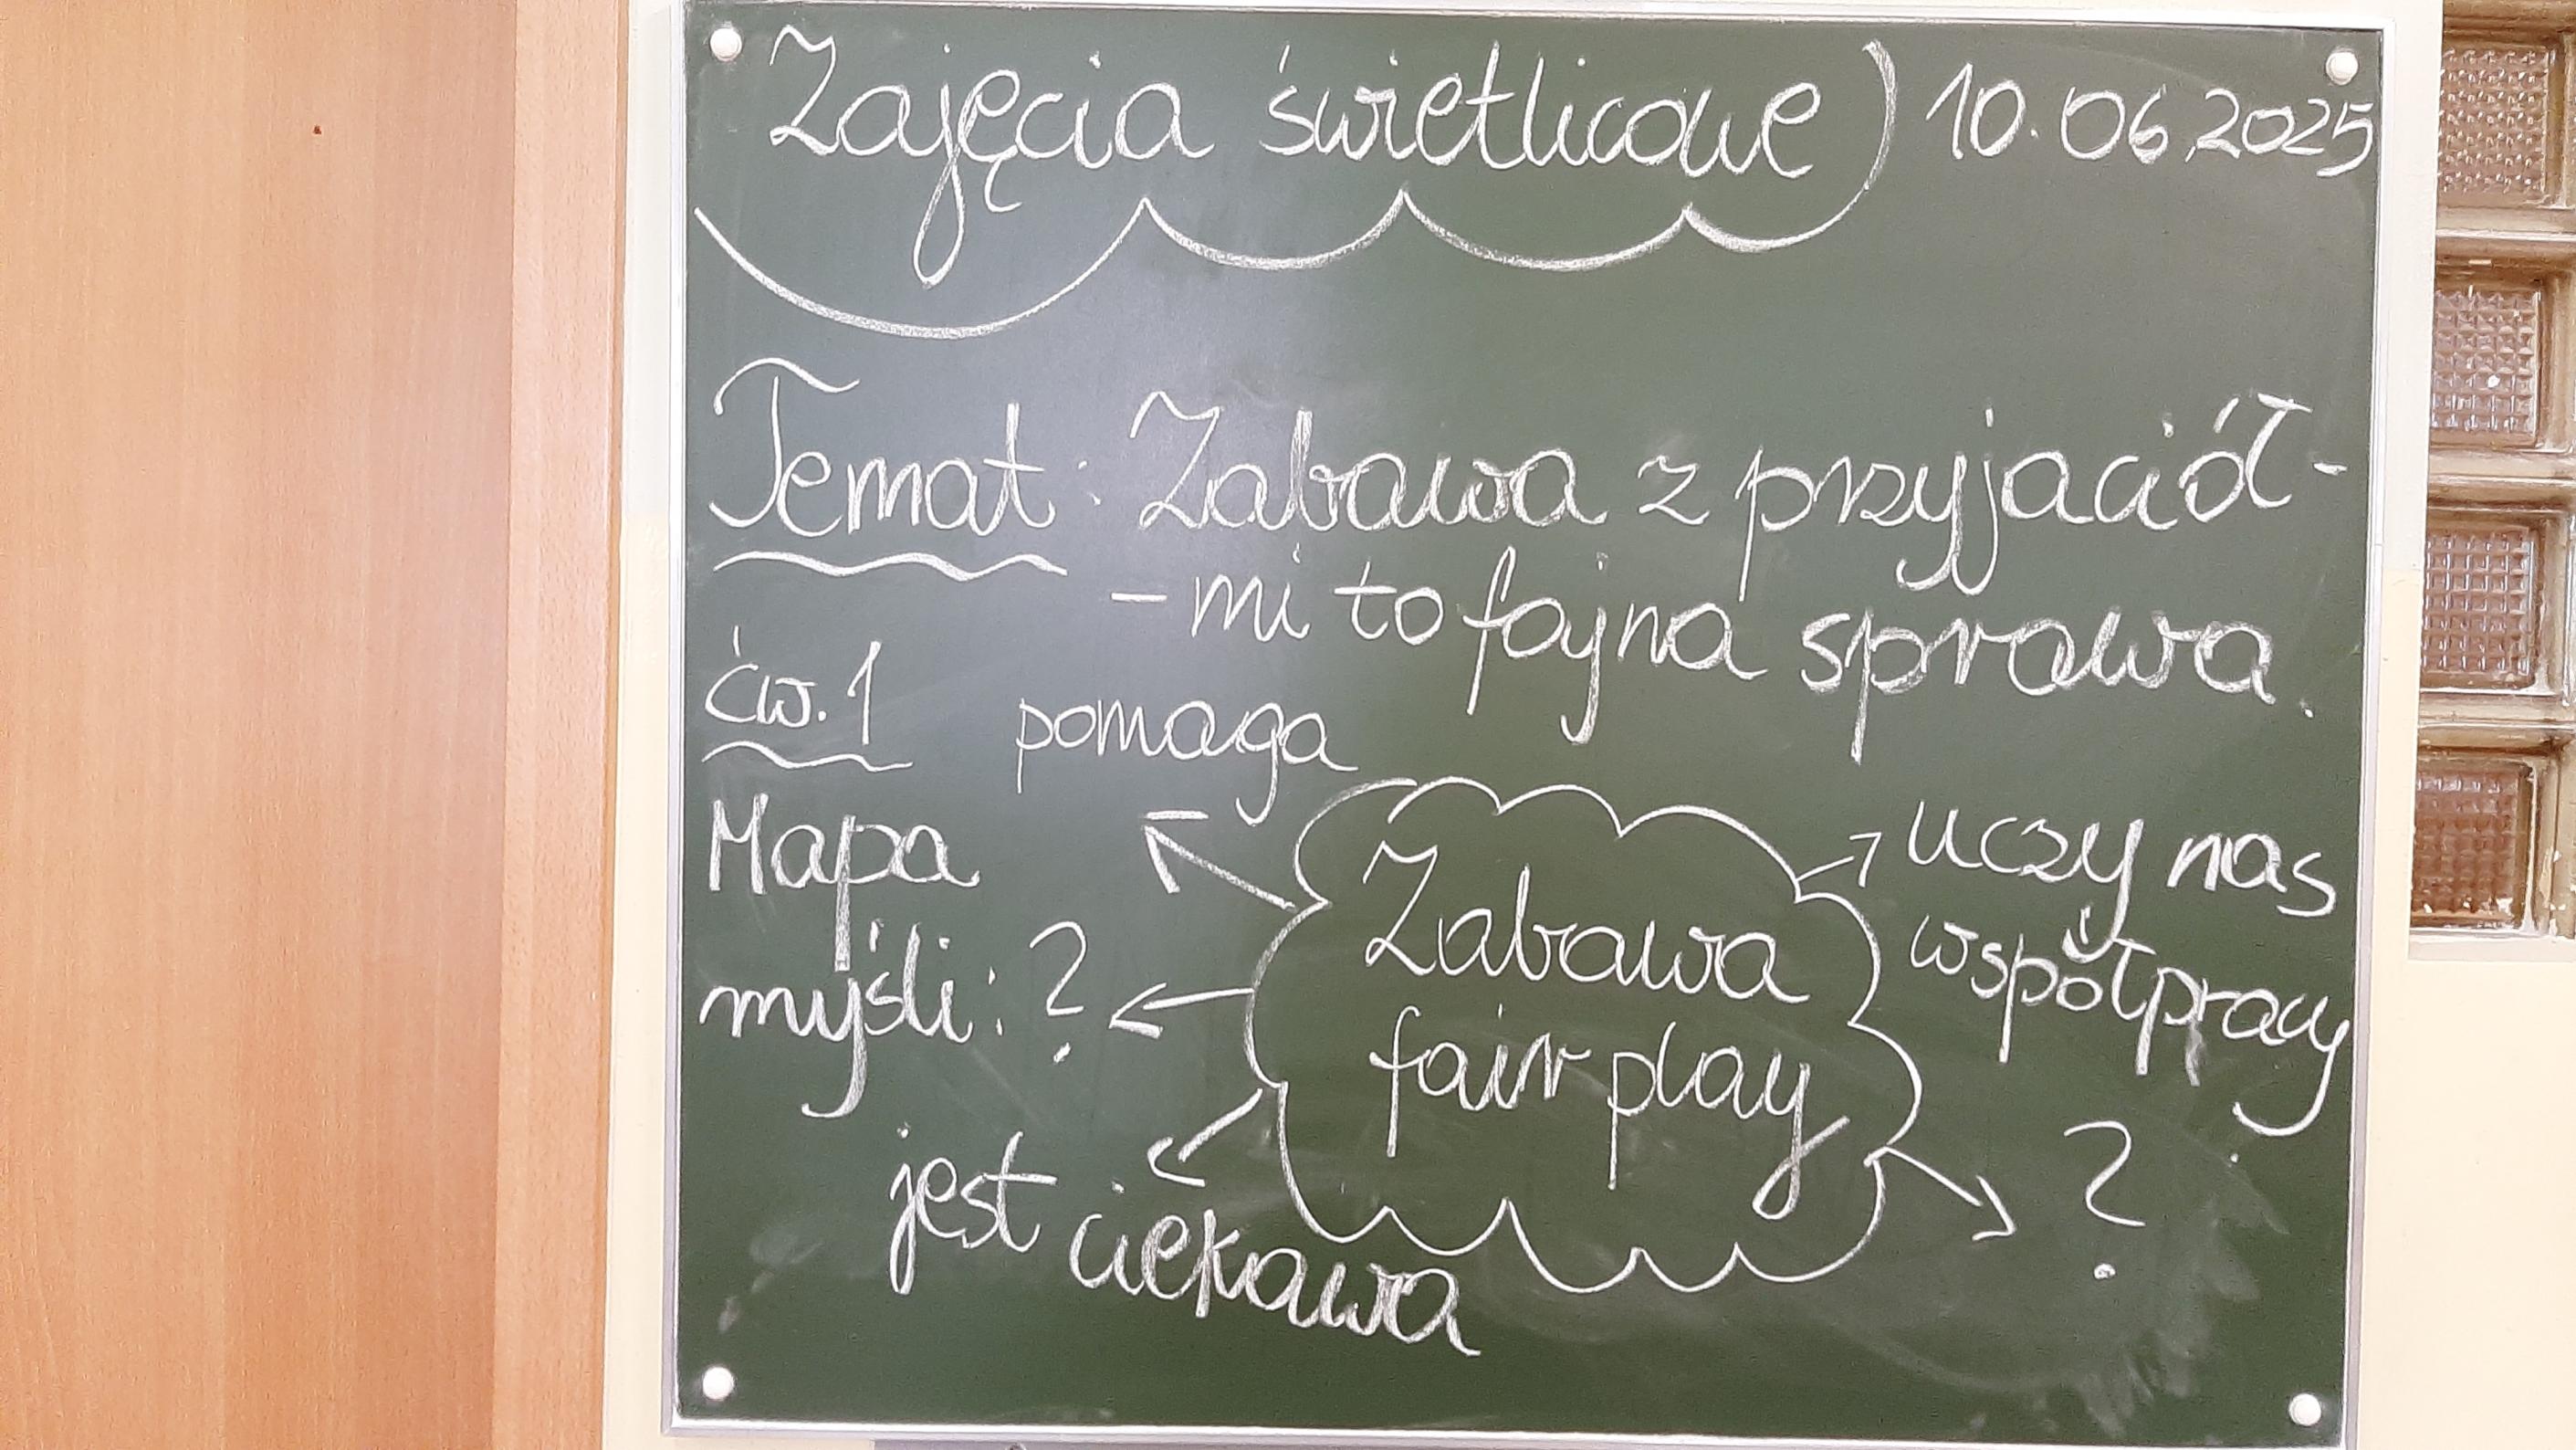 Zajęcia świetlicowe 10.06.2025
Temat: Zabawa z przyjaciół-
- mi to fajna sprawa.
ćw. 1
pomaga
Mapa
myśli: ?
Zabawa
fair play
uczy nas
współpracy
?
jest ciekawa